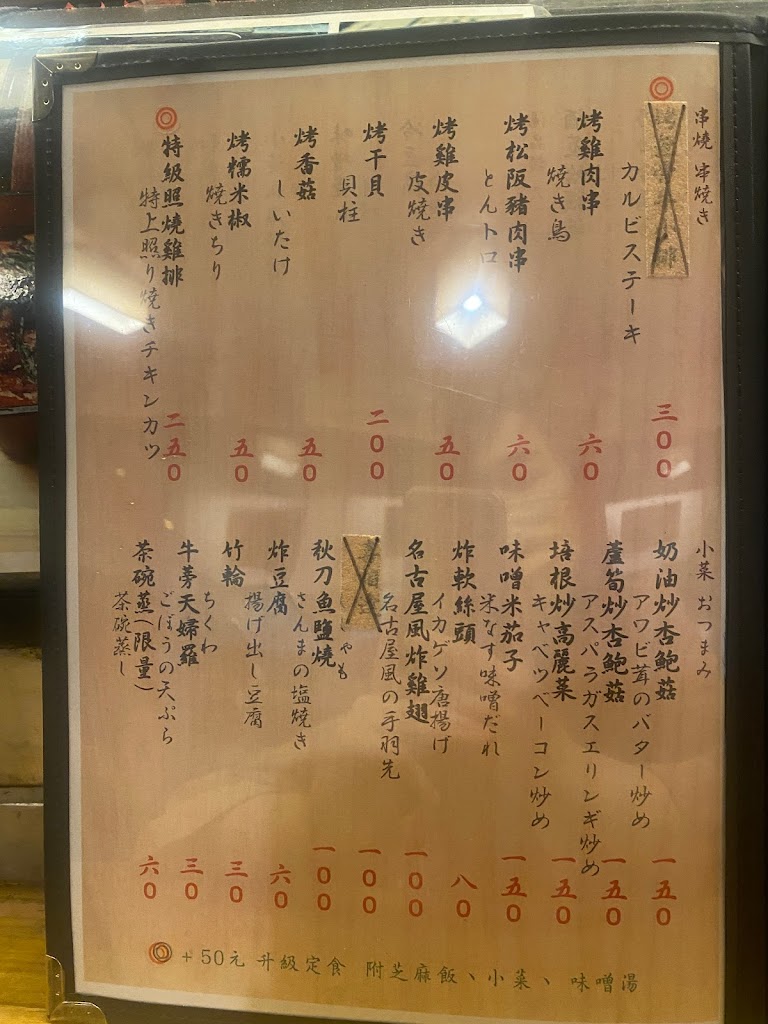 串燒 串焼き
カルビステーキ
三〇〇
烤雞肉串
焼き鳥
六〇
烤松阪豬肉串
とんトロ
六〇
烤雞皮串
皮焼き
五〇
烤干貝
貝柱
二〇〇
烤香菇
しいたけ
五〇
烤糯米椒
焼きちり
五〇
特級照燒雞排
特上照り焼きチキンカツ
二五〇
小菜 おつまみ
奶油炒杏鮑菇
アワビ茸のバター炒め
一五〇
蘆筍炒杏鮑菇
アスパラガスエリンギ炒め
一五〇
培根炒高麗菜
キャベツベーコン炒め
一五〇
味噌米茄子
米なす味噌だれ
一五〇
炸軟絲頭
イカゲソ唐揚げ
八〇
名古屋風炸雞翅
名古屋風の手羽先
一〇〇
ゃも
一〇〇
秋刀魚鹽燒
さんまの塩焼き
一〇〇
炸豆腐
揚げ出し豆腐
六〇
竹輪
ちくわ
三〇
牛蒡天婦羅
ごぼうの天ぷら
三〇
茶碗蒸(限量)
茶碗蒸し
六〇
+50元 升級定食 附芝麻飯、小菜、味噌湯